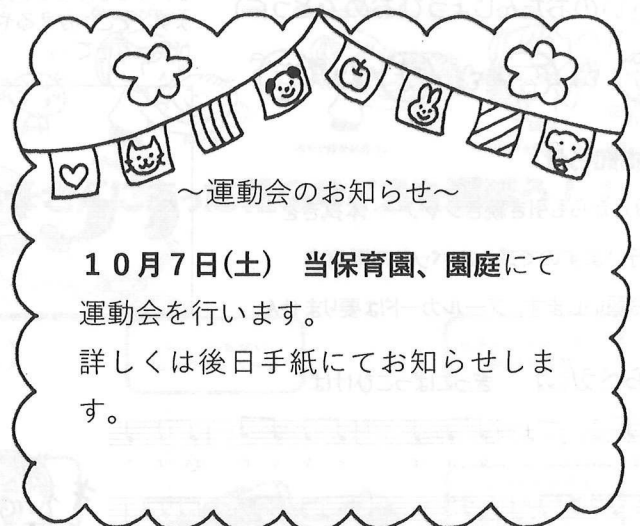 ～運動会のお知らせ～
１０月７日(土)　当保育園、園庭にて
運動会を行います。
詳しくは後日手紙にてお知らせしま
す。